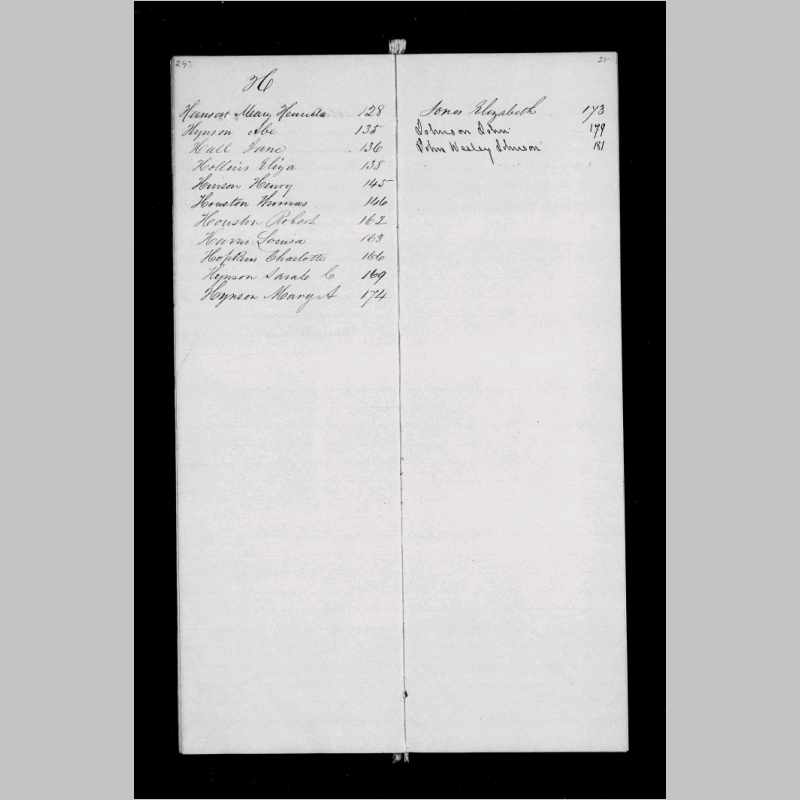 H
Mary Henrietta 128
Hynson Abe 135
Hall Jane 136
Hollins Eliza 138
Hinson Henry 145
Houston Thomas 146
Houston Robert 162
Louisa 163
Hopkins Charlotte 166
Hynson Sarah C 169
Hynson Mary A 174
Jones Elizabeth 173
Johnson John 179
John Wesley Johnson 181